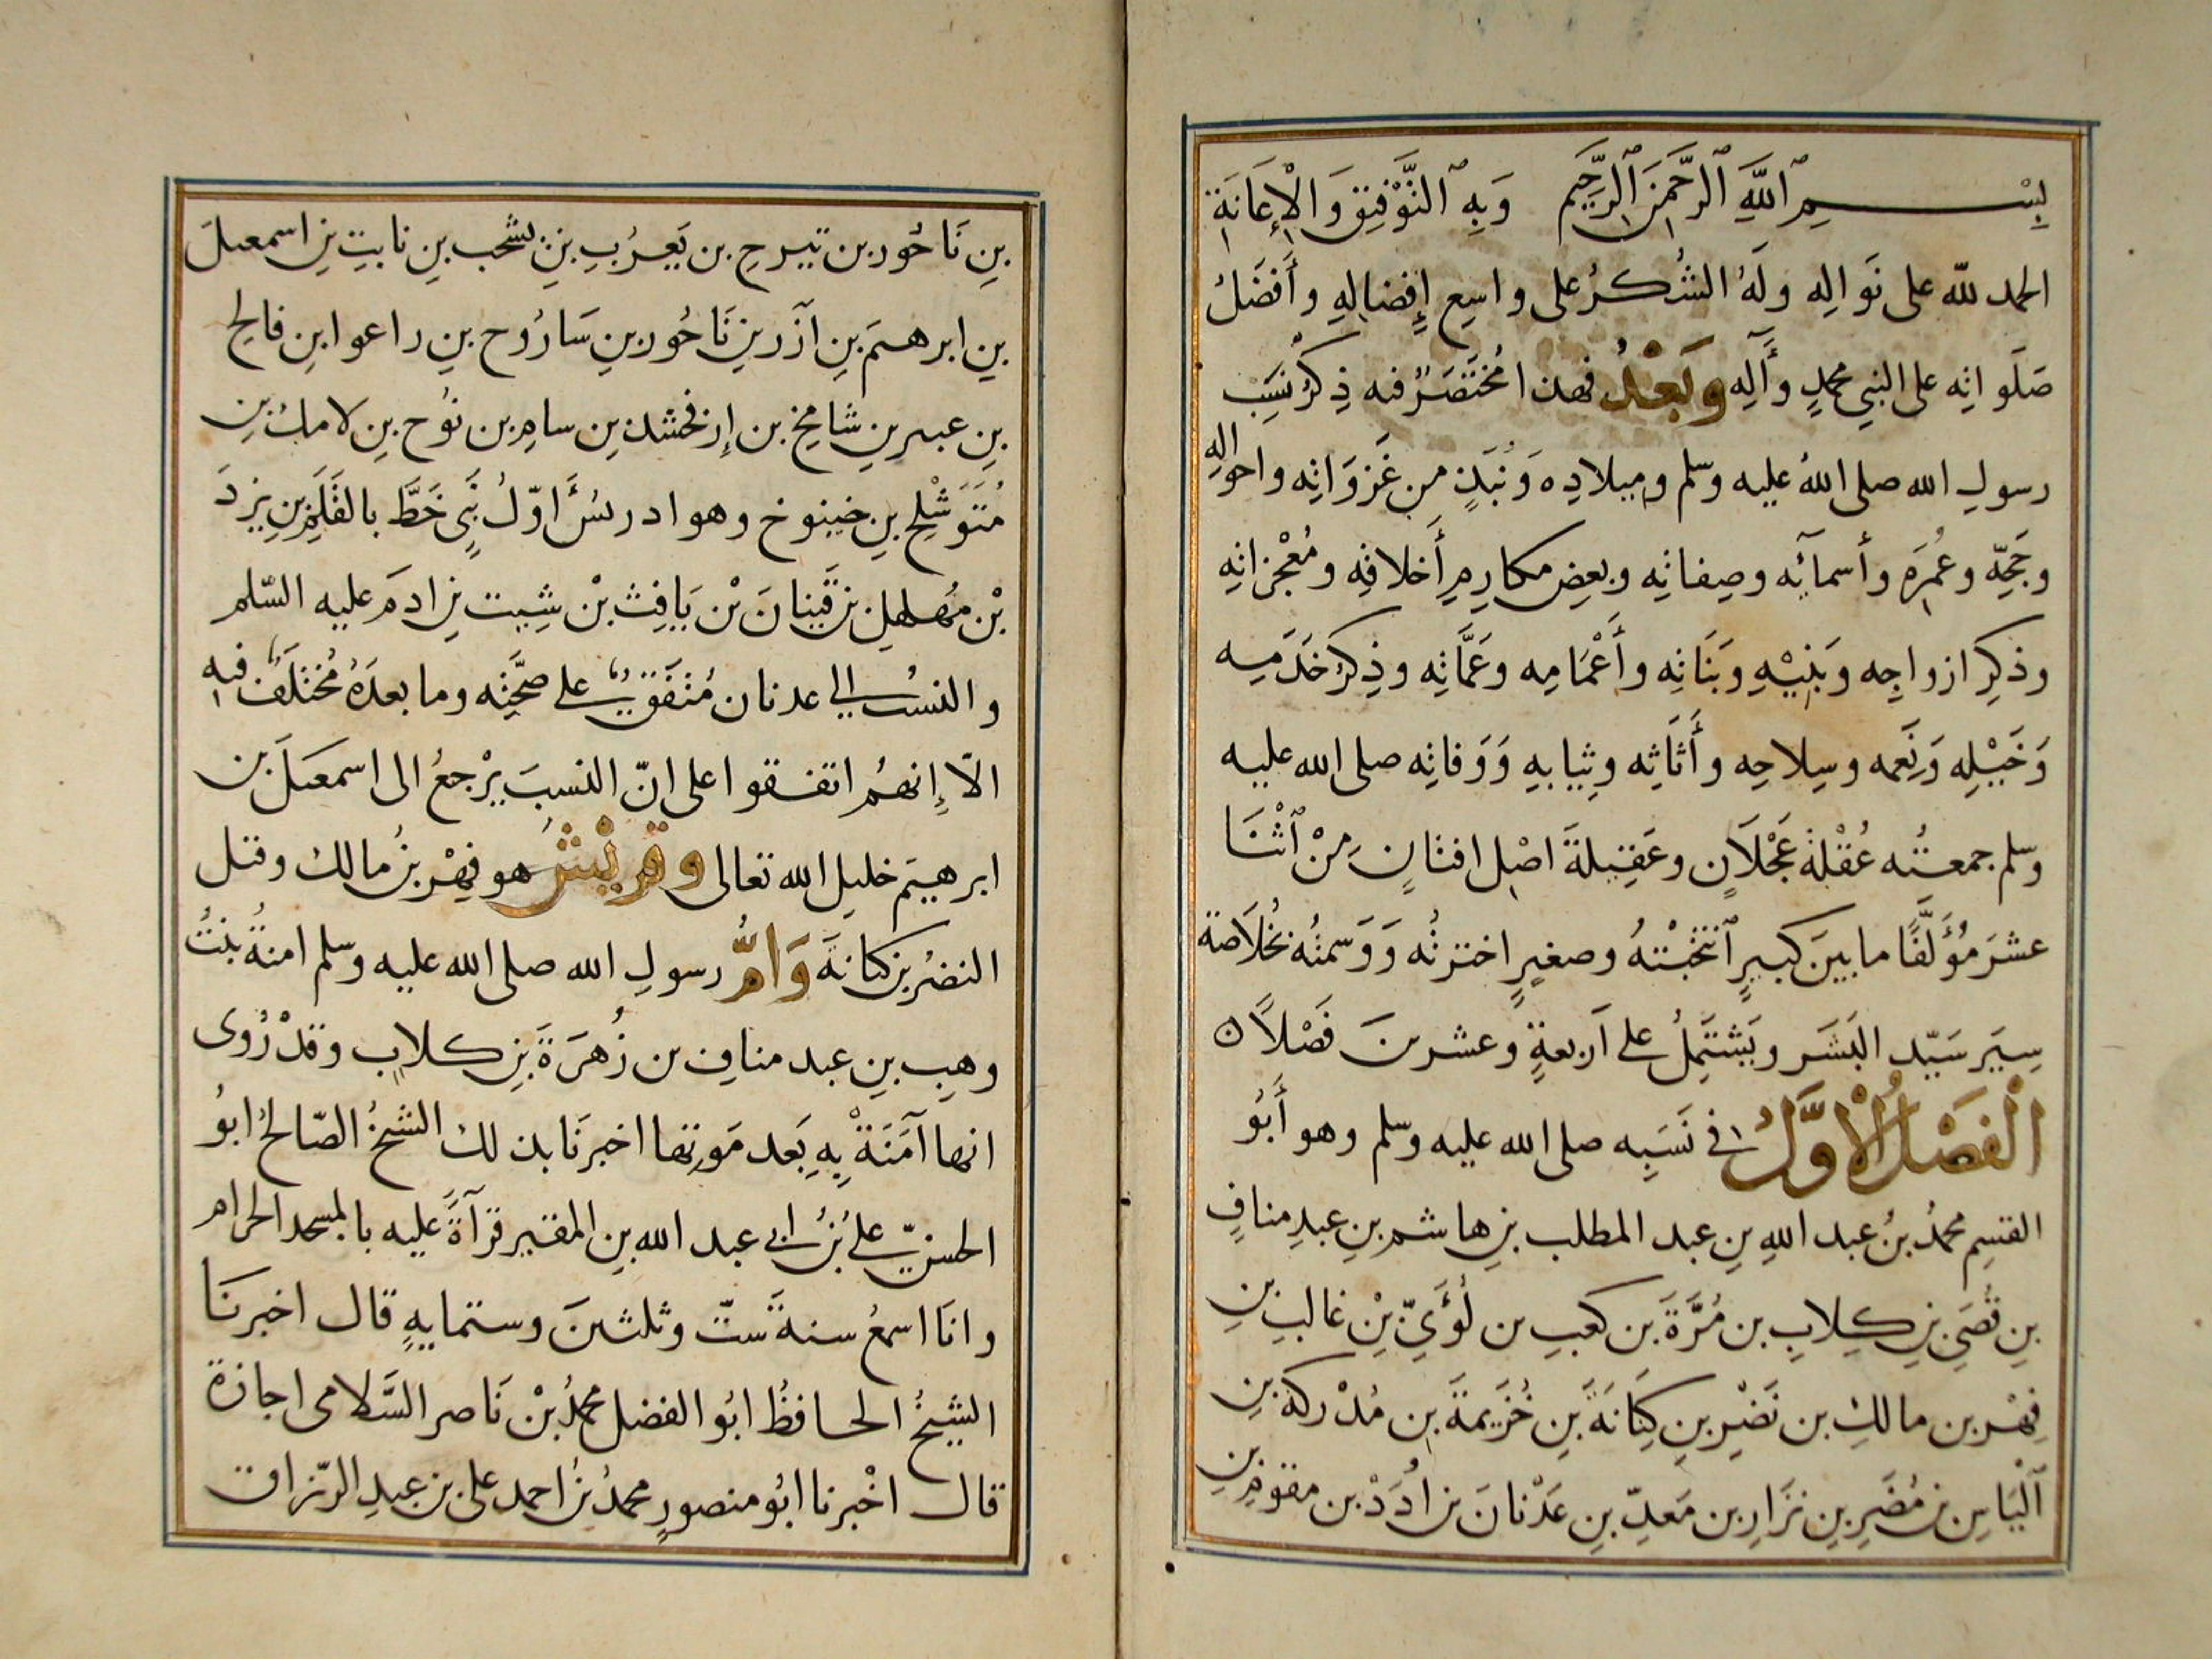 بِسْــــمِ ٱللَّهِ ٱلرَّحْمَنِ ٱلرَّحِيمِ وَبِهِ ٱلتَّوْفِيقِ وَالْإِعَانَةِ
الحمد لله على نَوالِه وَلَهُ الشُكرُ على واسِعِ إِفضالِهِ وأَفضَلُ
صَلَواتِه على النبي محمدٍ وأَلِه وَبَعْدُ فهذا مُخْتَصَرٌ فيه ذِكرُ نَسَبِ
رسولِ الله صلى اللهُ عليه وسلم وميلادِه وَنُبَذٍ من غَزَوَاتِه واحوالِه
وحَجِّه وعُمَرِه وأسمآئِه وصِفاتِه وبعضِ مكارِمِ أَخلاقِه ومُعْجزاتِه
وذكِرِ ازواجِه وَبَنِيْهِ وبَنَاتِه وأَعْمَامِه وعَمَّاتِه وذِكِرِ خَدَمِه
وَخَيْلِه وَنَعَمه وسِلاحِه وأَثَاثِه وثِيابِهِ وَوَفاتِه صلى الله عليه
وسلم جمعتُه عُقْلةَ عَجْلَانٍ وعَقِيلةَ اصْلِ افنانٍ مِنْ ٱثْنَا
عشرَ مُؤَلَّفًا ما بينَ كبيرٍ ٱنْتَخَبْتهُ وصغيرٍ اخترتُه وَوَسمتُه بخُلَاصة
سِيَرِ سَيّدِ البَشَرِ ويَشتَمِلُ على أَربعةٍ وعشرينَ فَصْلاً
الْفَصْلُ الْأَوَّلُ في نَسَبِه صلى الله عليه وسلم وهو أَبُو
القسمِ محمدُ بنُ عبد اللهِ بنِ عبد المطلب بنِ هاشمِ بنِ عبدِ منافٍ
بنِ قُصَيِ بنِ كِلابِ بن مُرَّةَ بن كعبِ بن لُؤَيِّ بْنِ غالبِ بنِ
فِهْرِ بن مالكِ بن نَضْيرِ بنِ كِنَانَةَ بنِ خُزَيمةَ بنِ مُدْرِكةَ بنِ
ٱلْيَاسِ بنِ مُضَرِ بنِ نِزَارِ بن مَعَدِّ بنِ عَدْنانَ بنِ أُدَدْ بن مقوم بنِ
بنِ نَاحُور بن تيرحِ بن يَعرُبِ بنِ يشجب بنِ نابتِ بنِ اسمعيلَ
بنِ ابرهيمَ بنِ آزَر بنِ نَاحُور بنِ سَارُوح بنِ راعوا بنِ فالح
بنِ عيبر بنِ شامِخِ بن إرفخشذ بنِ سامِ بن نُوحِ بنِ لامك بنِ
مُتَوَشْلِحِ بنِ خينوخ وهو ادريسُ أوّلُ نَبيٍ خَطَّ بالقَلَمِ بنِ يزدَ
بْنِ مهلهل بنِ قَينانَ بْن يَافِث بْن شِيث بنِ ادمَ عليه السّلم
والنسبُ الي عدنان مُتفَقٌ على صحَّتِه وما بعدَهُ مُختلَفٌ فيه
الّا إِنهمُ اتفقوا على انّ النسبَ يرْجعُ الى اسمعيلَ بن
ابرهيم خليلِ الله تعالى وقريشُ هو فِهْرُ بنُ مالك وقيل
النضرُ بن كنانةَ وَأُمُّ رسولِ الله صلى الله عليه وسلم امنةُ بنتُ
وهبِ بنِ عبد منافِ بن زُهرَةَ بنِ كلابِ وقدْ رُوى
انها آمَنَةْ بِهِ بَعد مَوتِها اخبرنَا بذلك الشيخُ الصّالحُ ابوُ
الحسنِ عليُ بْنُ ابي عبد الله بنِ المقير قرآةً عليه بالمسجد الحرام
وانَا اسمعُ سنةَ ستّ وثلثينَ وستمايةٍ قال اخبرنَا
الشيخُ الحافظُ ابوُ الفضل محمدُ بْنُ نَاصر السَّلامى اجازة
قال اخْبرنا ابُو منصورٍ محمدُ بنُ احمد على بن عبدِ الرّزاق